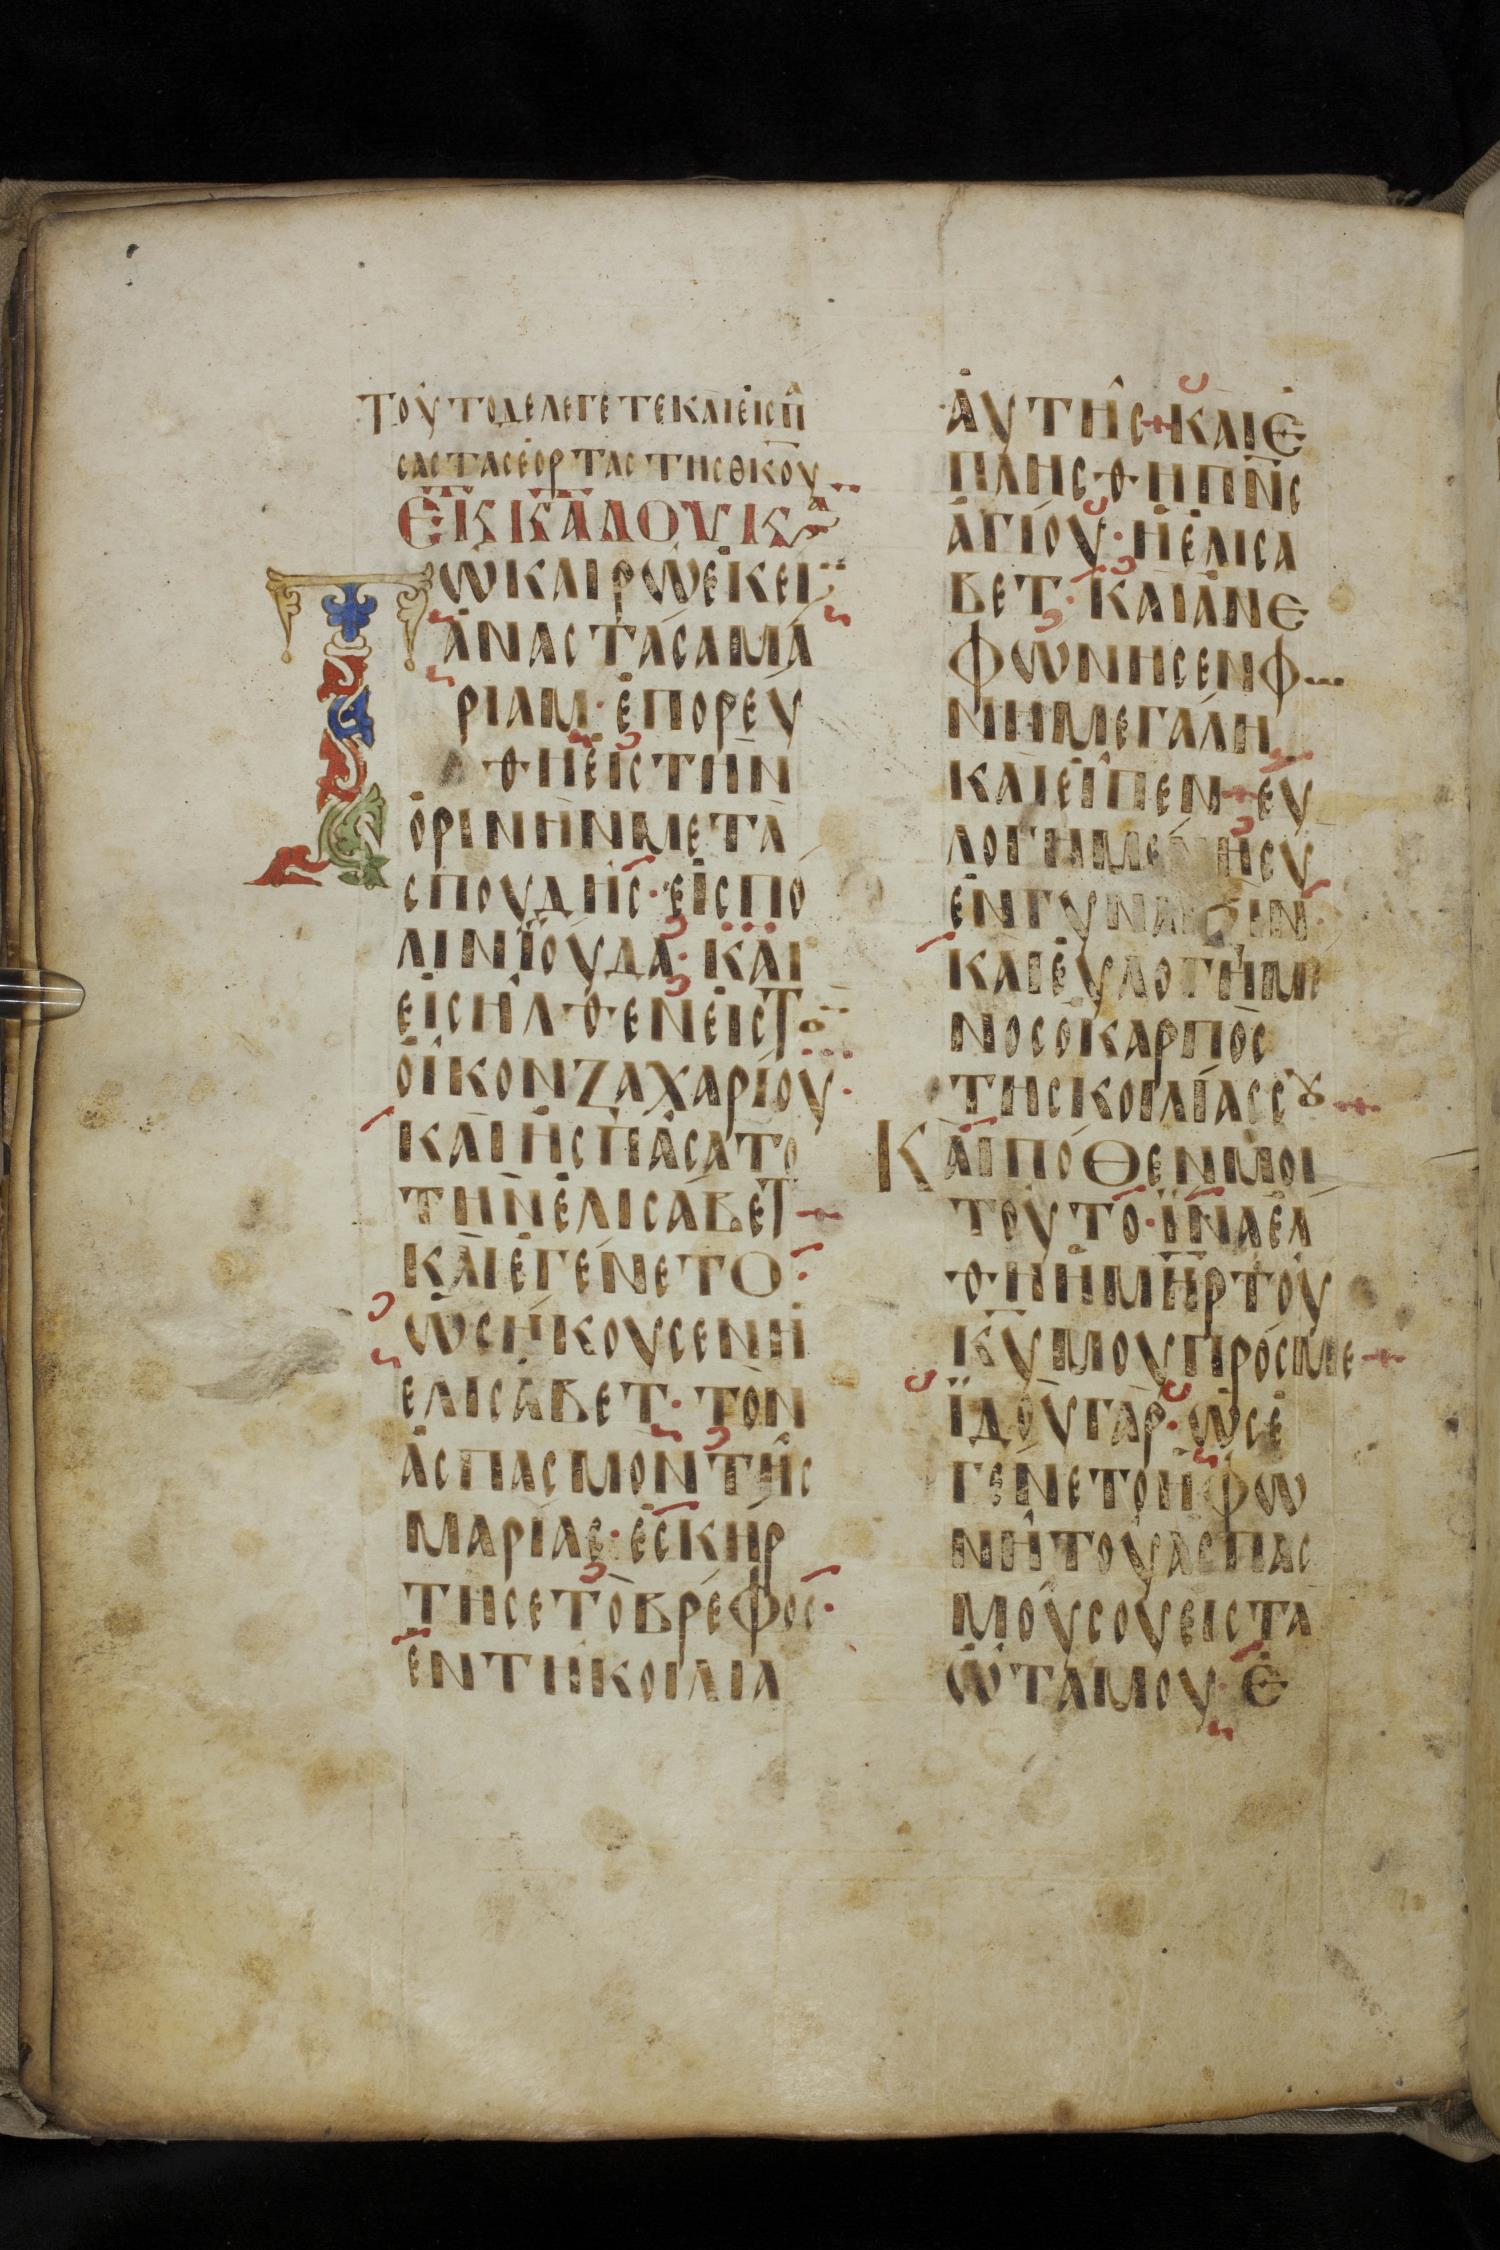 Τοῦτοδελεγετεκαιεἰςπ
σαςταςἑορταςτηςθκου
ἘΚΚΑΤΑΛΟΥΚ
ΤΩΚΑΙΡΩἘΚΕΙ
ἈΝΑϹΤΆϹΑΜΑ
ΡΙΑΜ· ἘΠΟΡΕΎ
ΘΗἘΙϹΤῊΝ
ὈΡΙΝῊΝΜΕΤᾺ
ϹΠΟΥΔΗ͂Ϲ· ἘΙϹΠΌ
ΛΙΝΪΟΎΔΑ· ΚΑῚ
ἘΙϹΗ͂ΛΘΕΝἘΙϹΤῸ
ὈΙ͂ΚΟΝΖΑΧΑΡΊΟΥ·
ΚΑΙἨϹΠΆϹΑΤΟ
ΤΗΝἘΛΙϹΆΒΕΤ
ΚΑῚἘΓΈΝΕΤΟ·
ὩϹΉΚΟΥϹΕΝἩ
ΕΛΙϹΆΒΕΤ· ΤῸΝ
ἈϹΠΑϹΜΟΝΤΗ͂Ϲ
ΜΑΡΊΑϹ· ἘϹΚΉΡ
ΤΗϹΕΤῸΒΡΈΦΟϹ·
ἘΝΤΗΚΟΙΛΊΑ
ἈΥΤΗ͂Ϲ ΚΑΙἘ
ΠΛΗϹΘΗΠΝϹ
ἉΓΊΟΥ· ἩἘΛΙϹΑ
ΒΕΤ· ΚΑΙἈΝΕ
ΦΏΝΗϹΕΝΦΩ
ΝΗΜΕΓΆΛΗ
ΚΑΙΕἶΠΕΝ ἘΥ
ΛΟΓΗΜΕΝΗϹΥ
ἘΝΓΥΝΑΙΞΙΝ·
ΚΑΙἘΥΛΟΓΗΜΕ
ΝΟϹὉΚΑΡΠῸϹ
ΤΗϹΚΟΙΛΊΑϹϹȢ
ΚΑῚΠΌΘΕΝΜΟΙ
ΤΟΥ͂ΤΟ· ἽΝΑἜΛ
ΘΗἩΜΗΡΤΟΥ
ΚΥΜΟΥΠΡΌϹΜΕ
ἸΔΟῪΓᾺΡ· ὩϹἘ
ΓΈΝΕΤΟἩΦΩ
ΝῊΤΟΥἈϹΠΑϹ
ΜΟΥ͂ϹΟΥΕΙϹΤΑ
ὮΤΑΜΟΥ· Ἐ